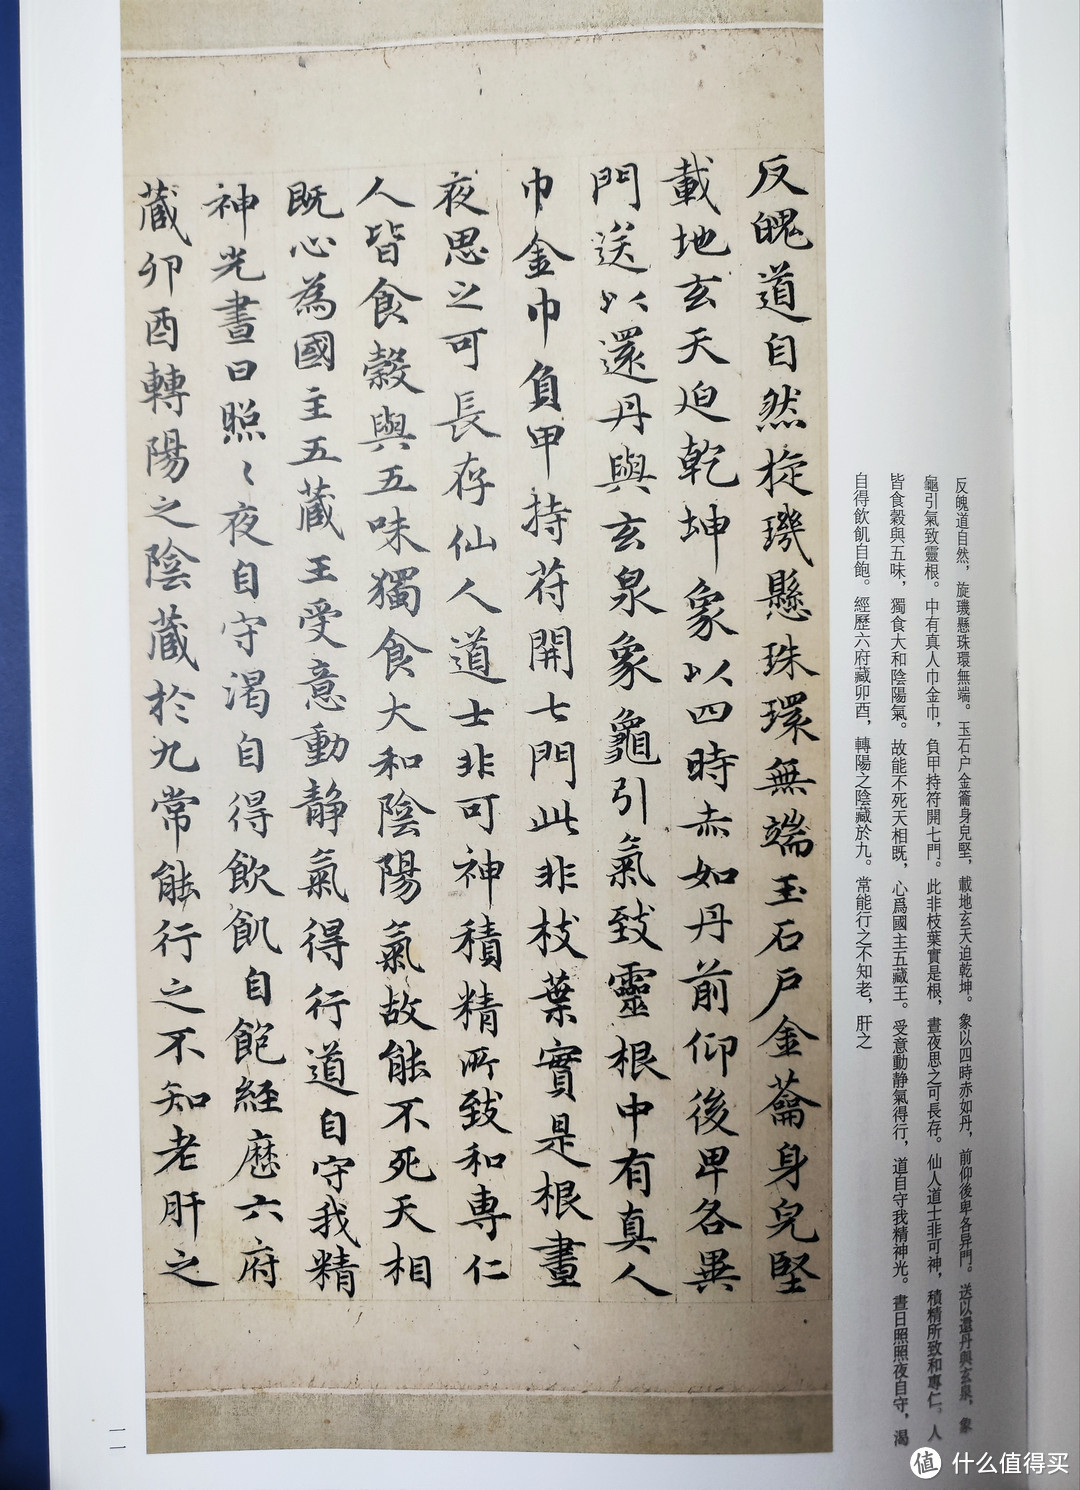 反魄道自然旋璣懸珠環無端玉石戶金蘥身皃堅
載地玄天迫乾坤象以四時赤如丹前仰後卑各異
門送以還丹與玄泉象龜引氣致靈根中有真人
巾金巾負甲持苻開七門此非枝葉實是根晝
夜思之可長存仙人道士非可神積精所致和專仁
人皆食穀與五味獨食大和陰陽氣故能不死天相
既心為國主五藏王受意動靜氣得行道自守我精
神光晝日照〻夜自守渴自得飲飢自飽經歷六府
藏卯酉轉陽之陰藏於九常能行之不知老肝之
反魄道自然，旋璣懸珠環無端。玉石户金籥身皃堅，載地玄天迫乾坤。象以四時赤如丹，前仰後卑各异門。送以還丹與玄泉，象
龜引氣致靈根。中有真人巾金巾，負甲持符開七門。此非枝葉實是根，晝夜思之可長存。仙人道士非可神，積精所致和專仁。人
皆食穀與五味，獨食大和陰陽氣。故能不死天相既，心爲國主五藏王。受意動静氣得行，道自守我精神光。晝日照照夜自守，渴
自得飲飢自飽。經歷六府藏卯酉，轉陽之陰藏於九。常能行之不知老，肝之
一一
值 什么值得买